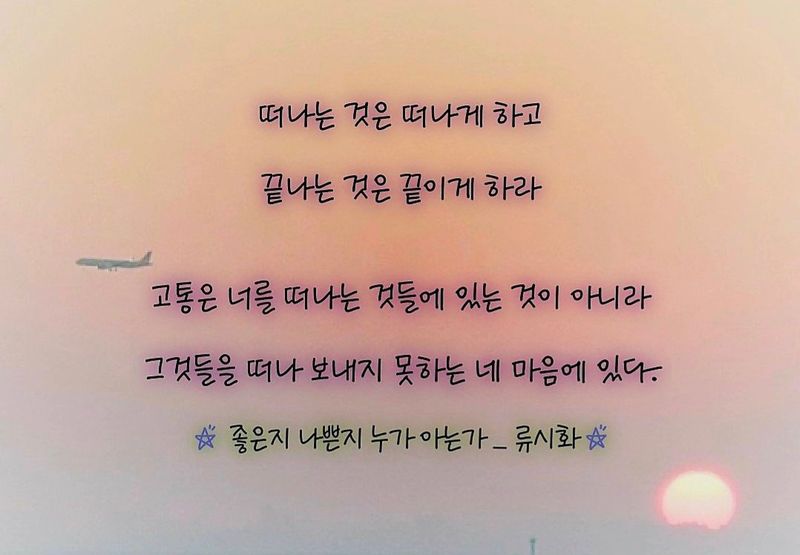 떠나는 것은 떠나게 하고
끝나는 것은 끝이게 하라
고통은 너를 떠나는 것들에 있는 것이 아니라
그것들을 떠나 보내지 못하는 네 마음에 있다.
☆ 좋은지 나쁜지 누가 아는가 _ 류시화 ☆